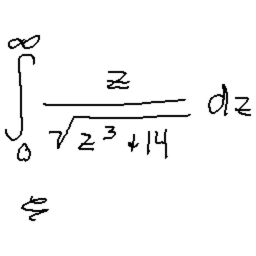 ∫₀^∞ z/√(z³+14) dz
ξ